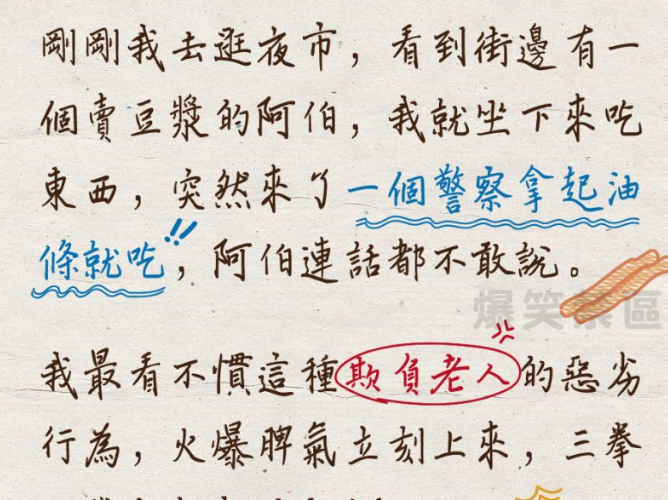 剛剛我去逛夜市，看到街邊有一
個賣豆漿的阿伯，我就坐下來吃
東西，突然來了一個警察拿起油
條就吃!!，阿伯連話都不敢說。
爆笑禁區
我最看不慣這種欺負老人的惡劣
行為，火爆脾氣立刻上來，三拳